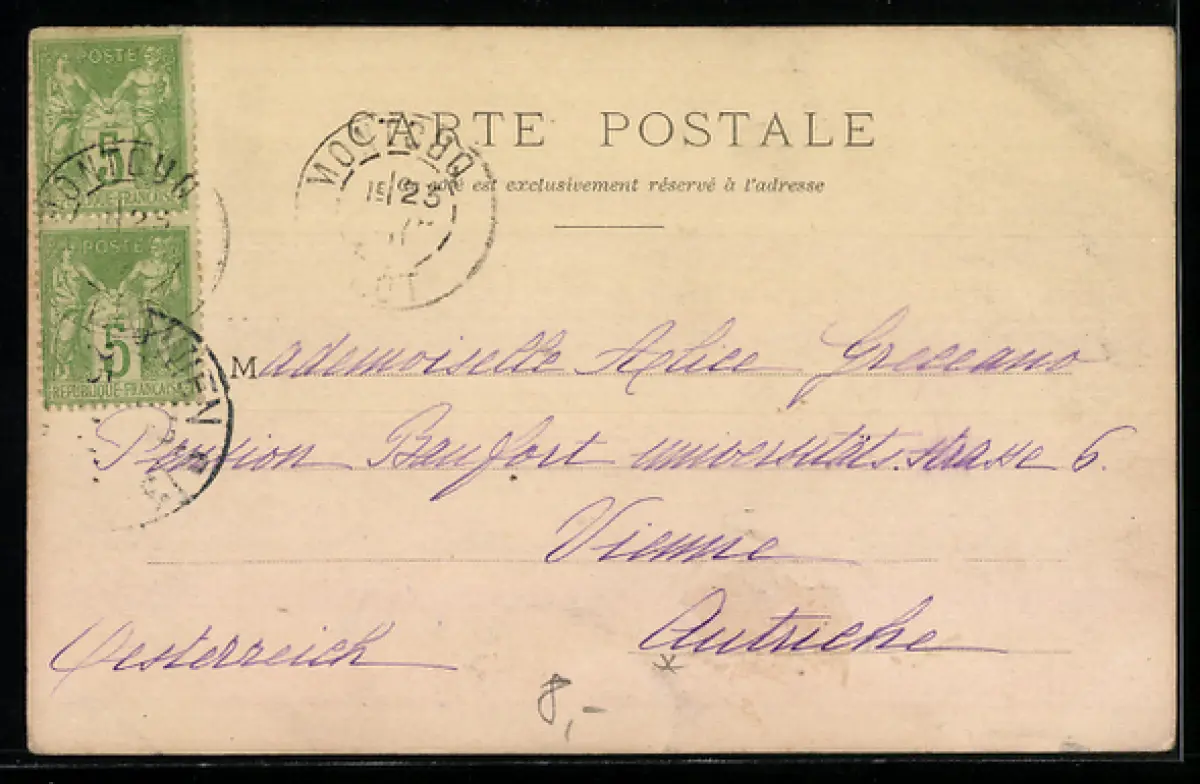 POSTE
5
RÉPUBLIQUE FRANÇAISE
MONTCUQ
23
POSTE
5
RÉPUBLIQUE FRANÇAISE
WIEN
CARTE POSTALE
Ce côté est exclusivement réservé à l'adresse
MONTCUQ
23
LOT
Mademoiselle Alice Greceano
Pension Baufort universitäts.strasse 6.
Vienne
Autriche
Oesterreich
8,-